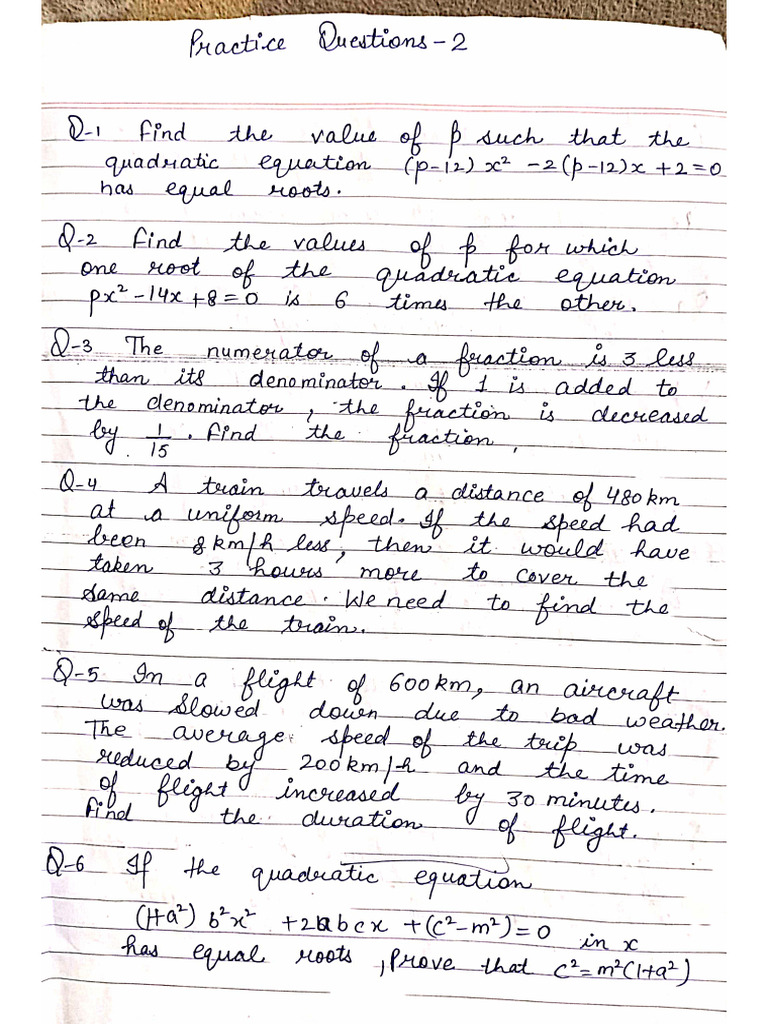 Practice Questions-2
Q-1 Find the value of p such that the
quadratic equation (p-12) x² -2(p-12)x +2=0
has equal roots.
Q-2 Find the values of p for which
one root of the quadratic equation
px²-14x+8=0 is 6 times the other.
Q-3 The numerator of a fraction is 3 less
than its denominator. If 1 is added to
the denominator, the fraction is decreased
by 1/15. Find the fraction.
Q-4 A train travels a distance of 480 km
at a uniform speed. If the speed had
been 8 km/h less, then it would have
taken 3 hours more to cover the
same distance. We need to find the
speed of the train.
Q-5 In a flight of 600km, an aircraft
was slowed down due to bad weather.
The average speed of the trip was
reduced by 200km/h and the time
of flight increased by 30 minutes.
Find the duration of flight.
Q-6 If the quadratic equation
(1+a²) b²x² +2abcx +(c²-m²)=0 in x
has equal roots, Prove that c²=m²(1+a²)